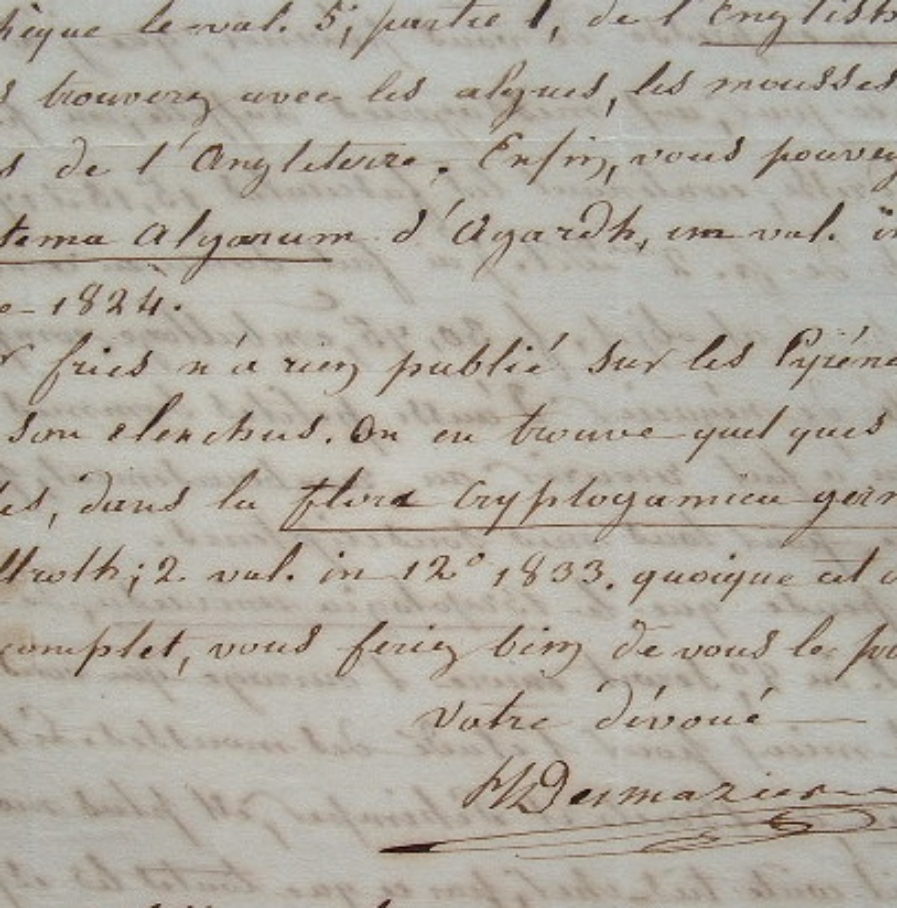 hèque le vol. 5, partie 1, de l'English
s trouverez avec les algues, les mousses
s de l'Angleterre. Enfin, vous pouvez
tema Algarum d'Agardh, un vol. in
1824.
fries n'a rien publié sur les Pyréné
son elenchus. On en trouve quelques
les, dans la flora Cryptogamica germ
llroth; 2 vol. in 12° 1833. quoique cet o
complet, vous feriez bien de vous le pro
Votre dévoué
Desmazier